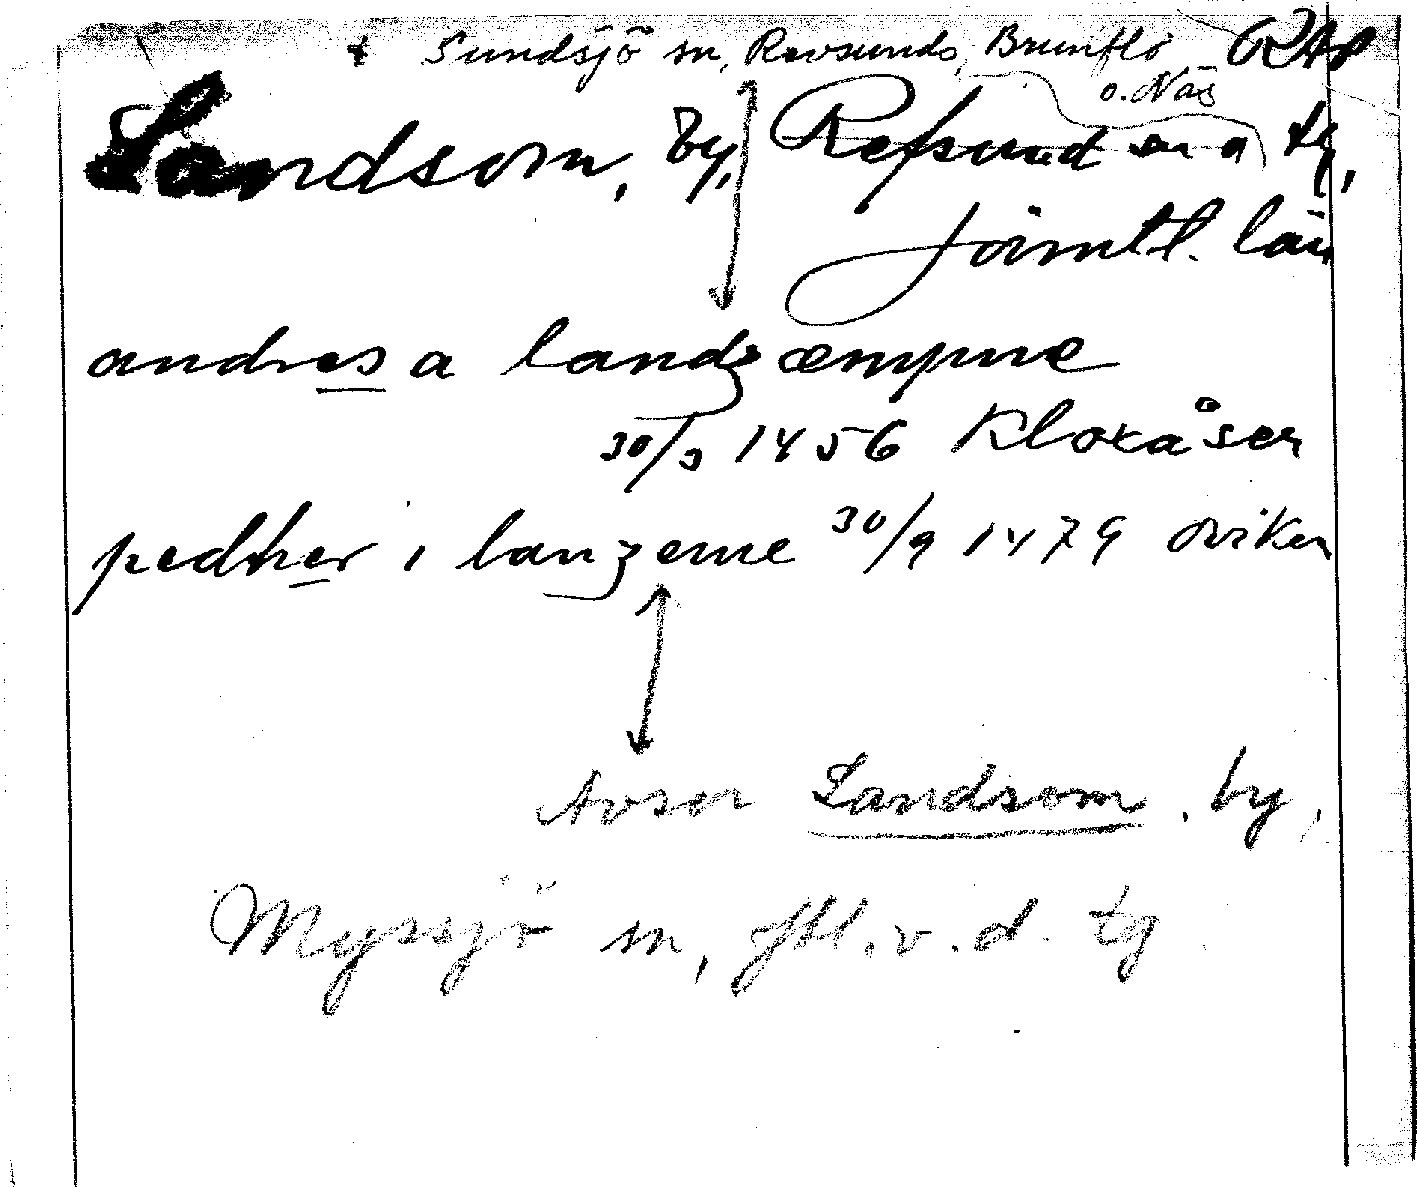 Sundsjö sn, Revsunds, Brunflo
o. Näs
Landsom, by, Refsund sn o tg,
Jämtl. län
andres a landzæmpne
30/3 1456 Klokåser
pedher i lanzeme 30/9 1479 Oviken
Avser Landsom, by,
Myssjö sn, Jtl. v. d. tg